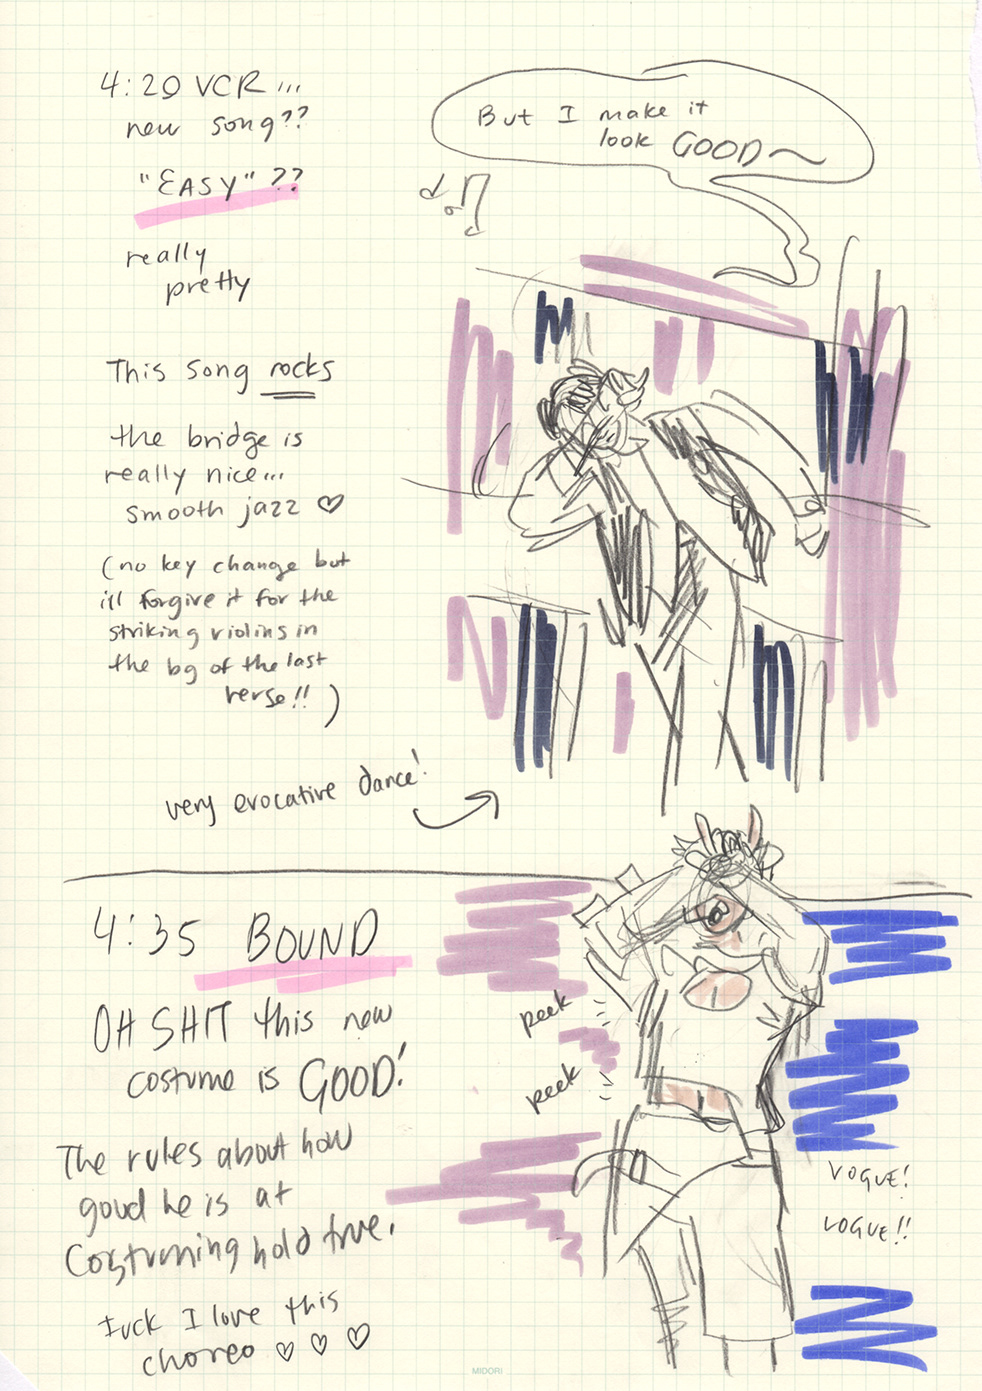 4:20 VCR...
new song??
"EASY" ??
really
pretty
But I make it
look GOOD~
This song rocks
the bridge is
really nice...
smooth jazz ♡
(no key change but
i'll forgive it for the
striking violins in
the bg of the last
verse!! )
very evocative dance!
4:35 BOUND
OH SHIT this new
costume is GOOD!
The rules about how
good he is at
Costuming hold true.
Fuck I love this
choreo ♡ ♡ ♡
peek
peek
VOGUE!
VOGUE!!
MIDORI